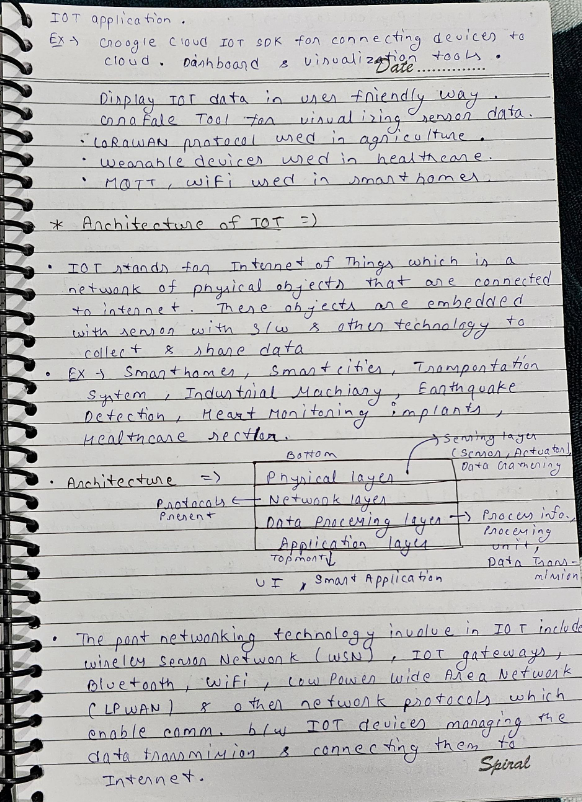 IOT application .
Ex → Google Cloud IOT SDK for connecting devices to
cloud . Dashboard & visualization tools .
Date ..............
Display IOT data in user friendly way .
Grafale Tool for visualizing sensor data.
• LoRaWAN protocol used in agriculture .
• Wearable devices used in healthcare .
• MQTT , WiFi used in smart homes .
* Architecture of IOT =>
• IOT stands for Internet of Things which is a
network of physical objects that are connected
to internet . These objects are embedded
with sensor with s/w & other technology to
collect & share data
• Ex → Smart homes , Smart cities , Transportation
System , Industrial Machiary , Earthquake
Detection , Heart Monitoring implants ,
Healthcare section .
Bottom
Sensing layer
(Sensor, Actuator)
Data Gathering
• Architecture =>
Physical layer
Protocols Present ← Network layer
Data Processing layer → Process info.,
Processing
unit,
Data Trans-
mission
Application layer
Topmost
UI , Smart Application
• The part networking technology involve in IOT include
wireless Sensor Network (WSN) , IOT gateways ,
Bluetooth , WiFi , Low Power Wide Area Network
(LPWAN) & other network protocols which
enable comm. b/w IOT devices managing the
data transmission & connecting them to
Internet .
Spiral